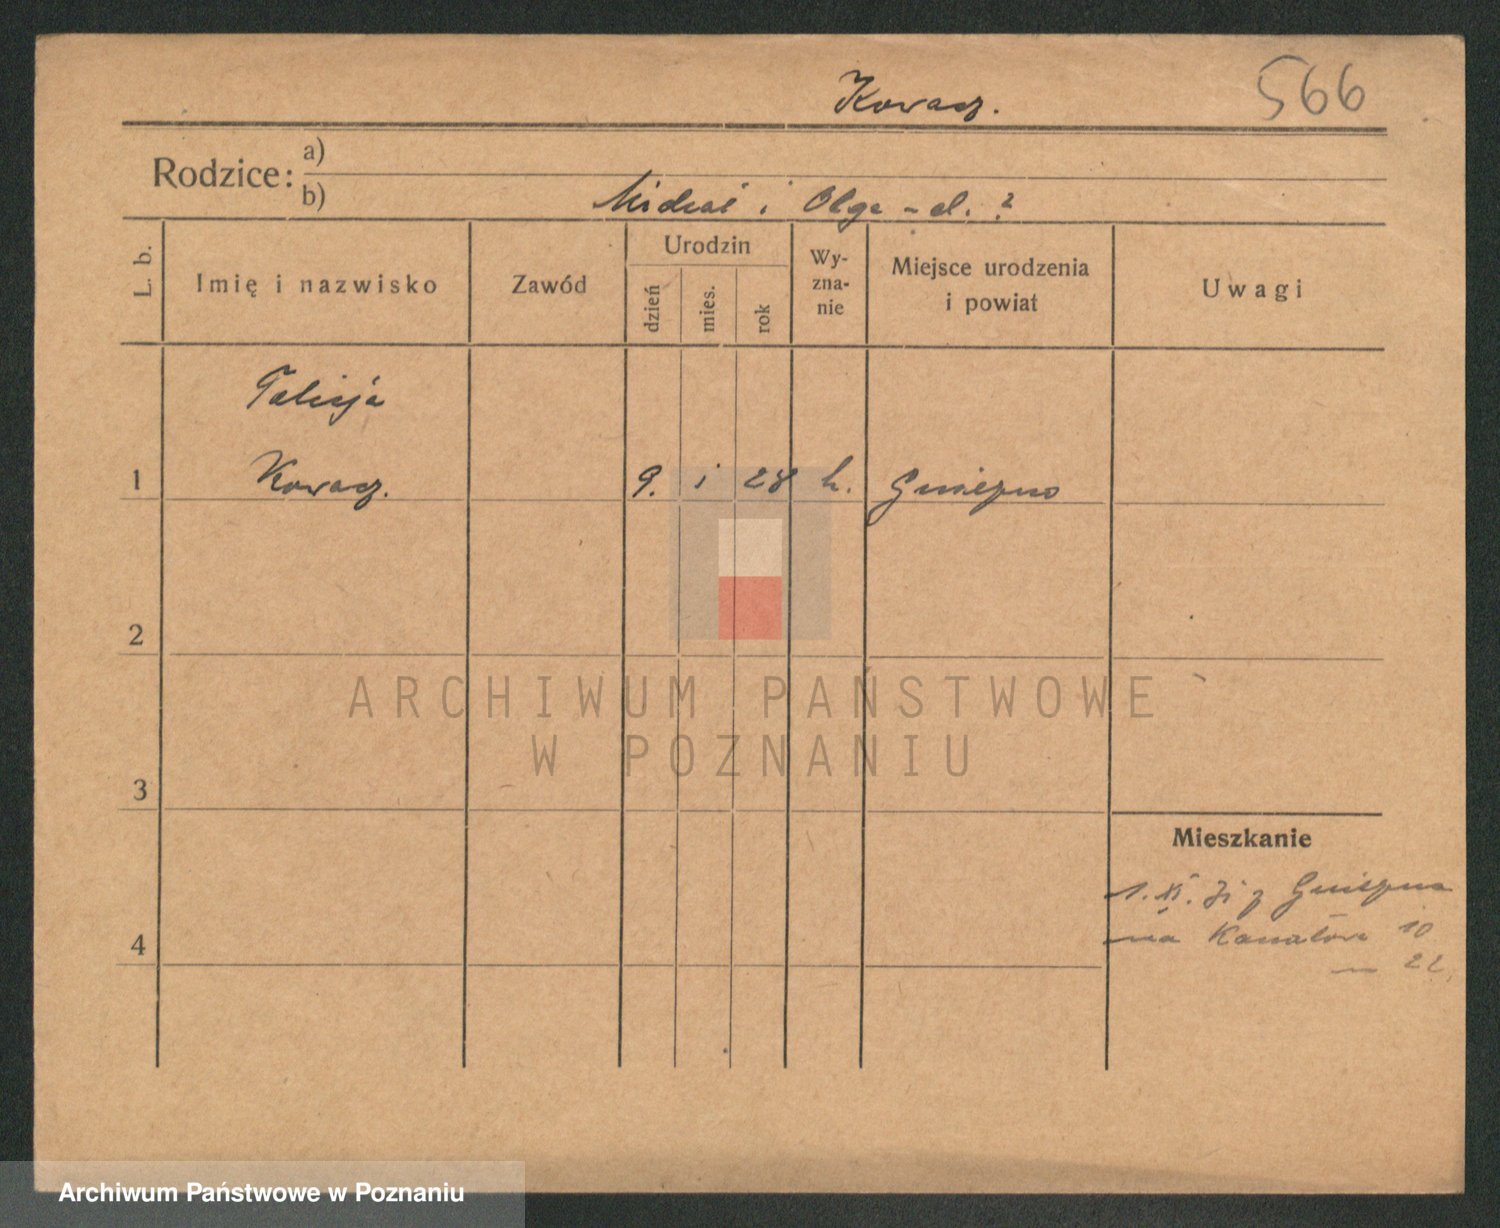 Kowacz.
566
Rodzice:
a)
b) Michał i Olga - d. ?
L. b.
Imię i nazwisko
Zawód
Urodzin
dzień
mies.
rok
Wy-
zna-
nie
Miejsce urodzenia
i powiat
Uwagi
Felicja
1 Kowacz. 9. i 28 k. Gniezno
2
3
4
Mieszkanie
1. XI. z Gniezna
na 10
22
ARCHIWUM PAŃSTWOWE
W POZNANIU
Archiwum Państwowe w Poznaniu